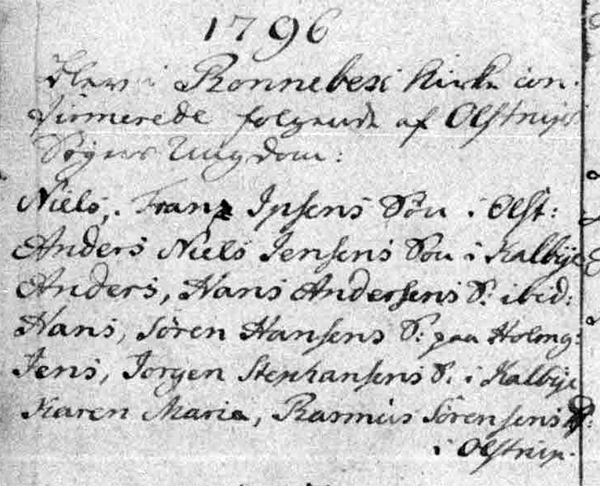 1796
blev i Rønnebexi Kirke con-
firmerede følgende af Olstrups
Sogns Ungdom:
Niels, Franz Ipsens Søn i Olst:
Anders Niels Jensens Søn i Kalbÿe
Anders, Hans Andersens S: ibid:
Hans, Søren Hansens S: paa Holmg:
Jens, Jørgen Stephansens S: i Kalbÿe
Karen Maria, Rasmus Sørensens D:
i Olstrup.